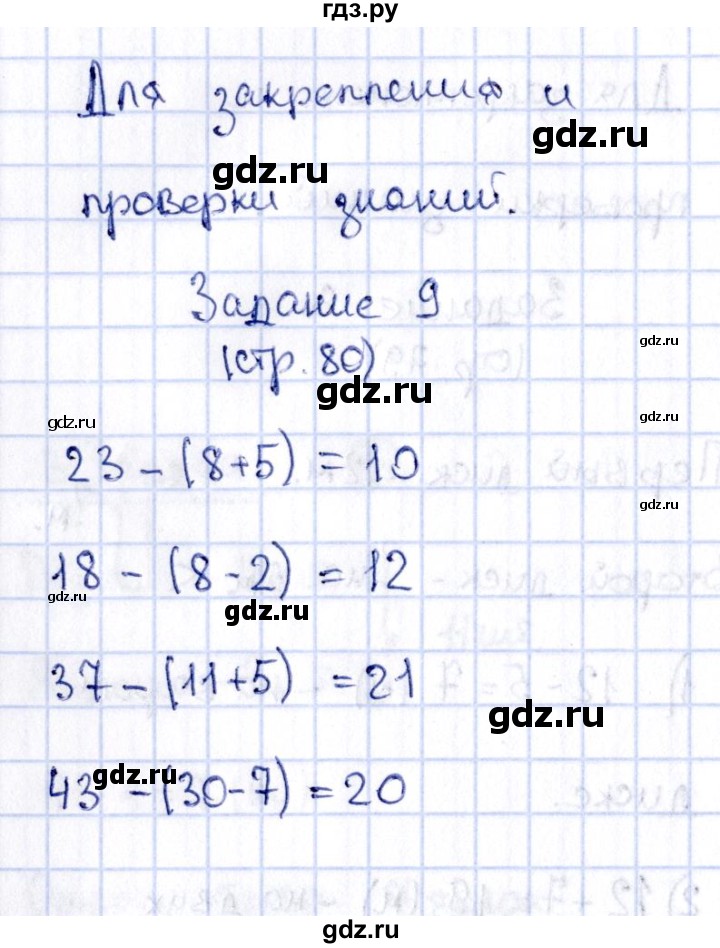 гдз.ру
Для закрепления и
gdz.ru
gdz.ru
проверки знаний.
Задание 9
(стр. 80)
gdz.ru
gdz.ru
gdz.ru
gdz.ru
23 - (8+5) = 10
gdz.ru
18 - (8-2) = 12
gdz.ru
gdz.ru
37 - (11+5) = 21
gdz.ru
gdz.ru
43 - (30-7) = 20
gdz.ru
gdz.ru